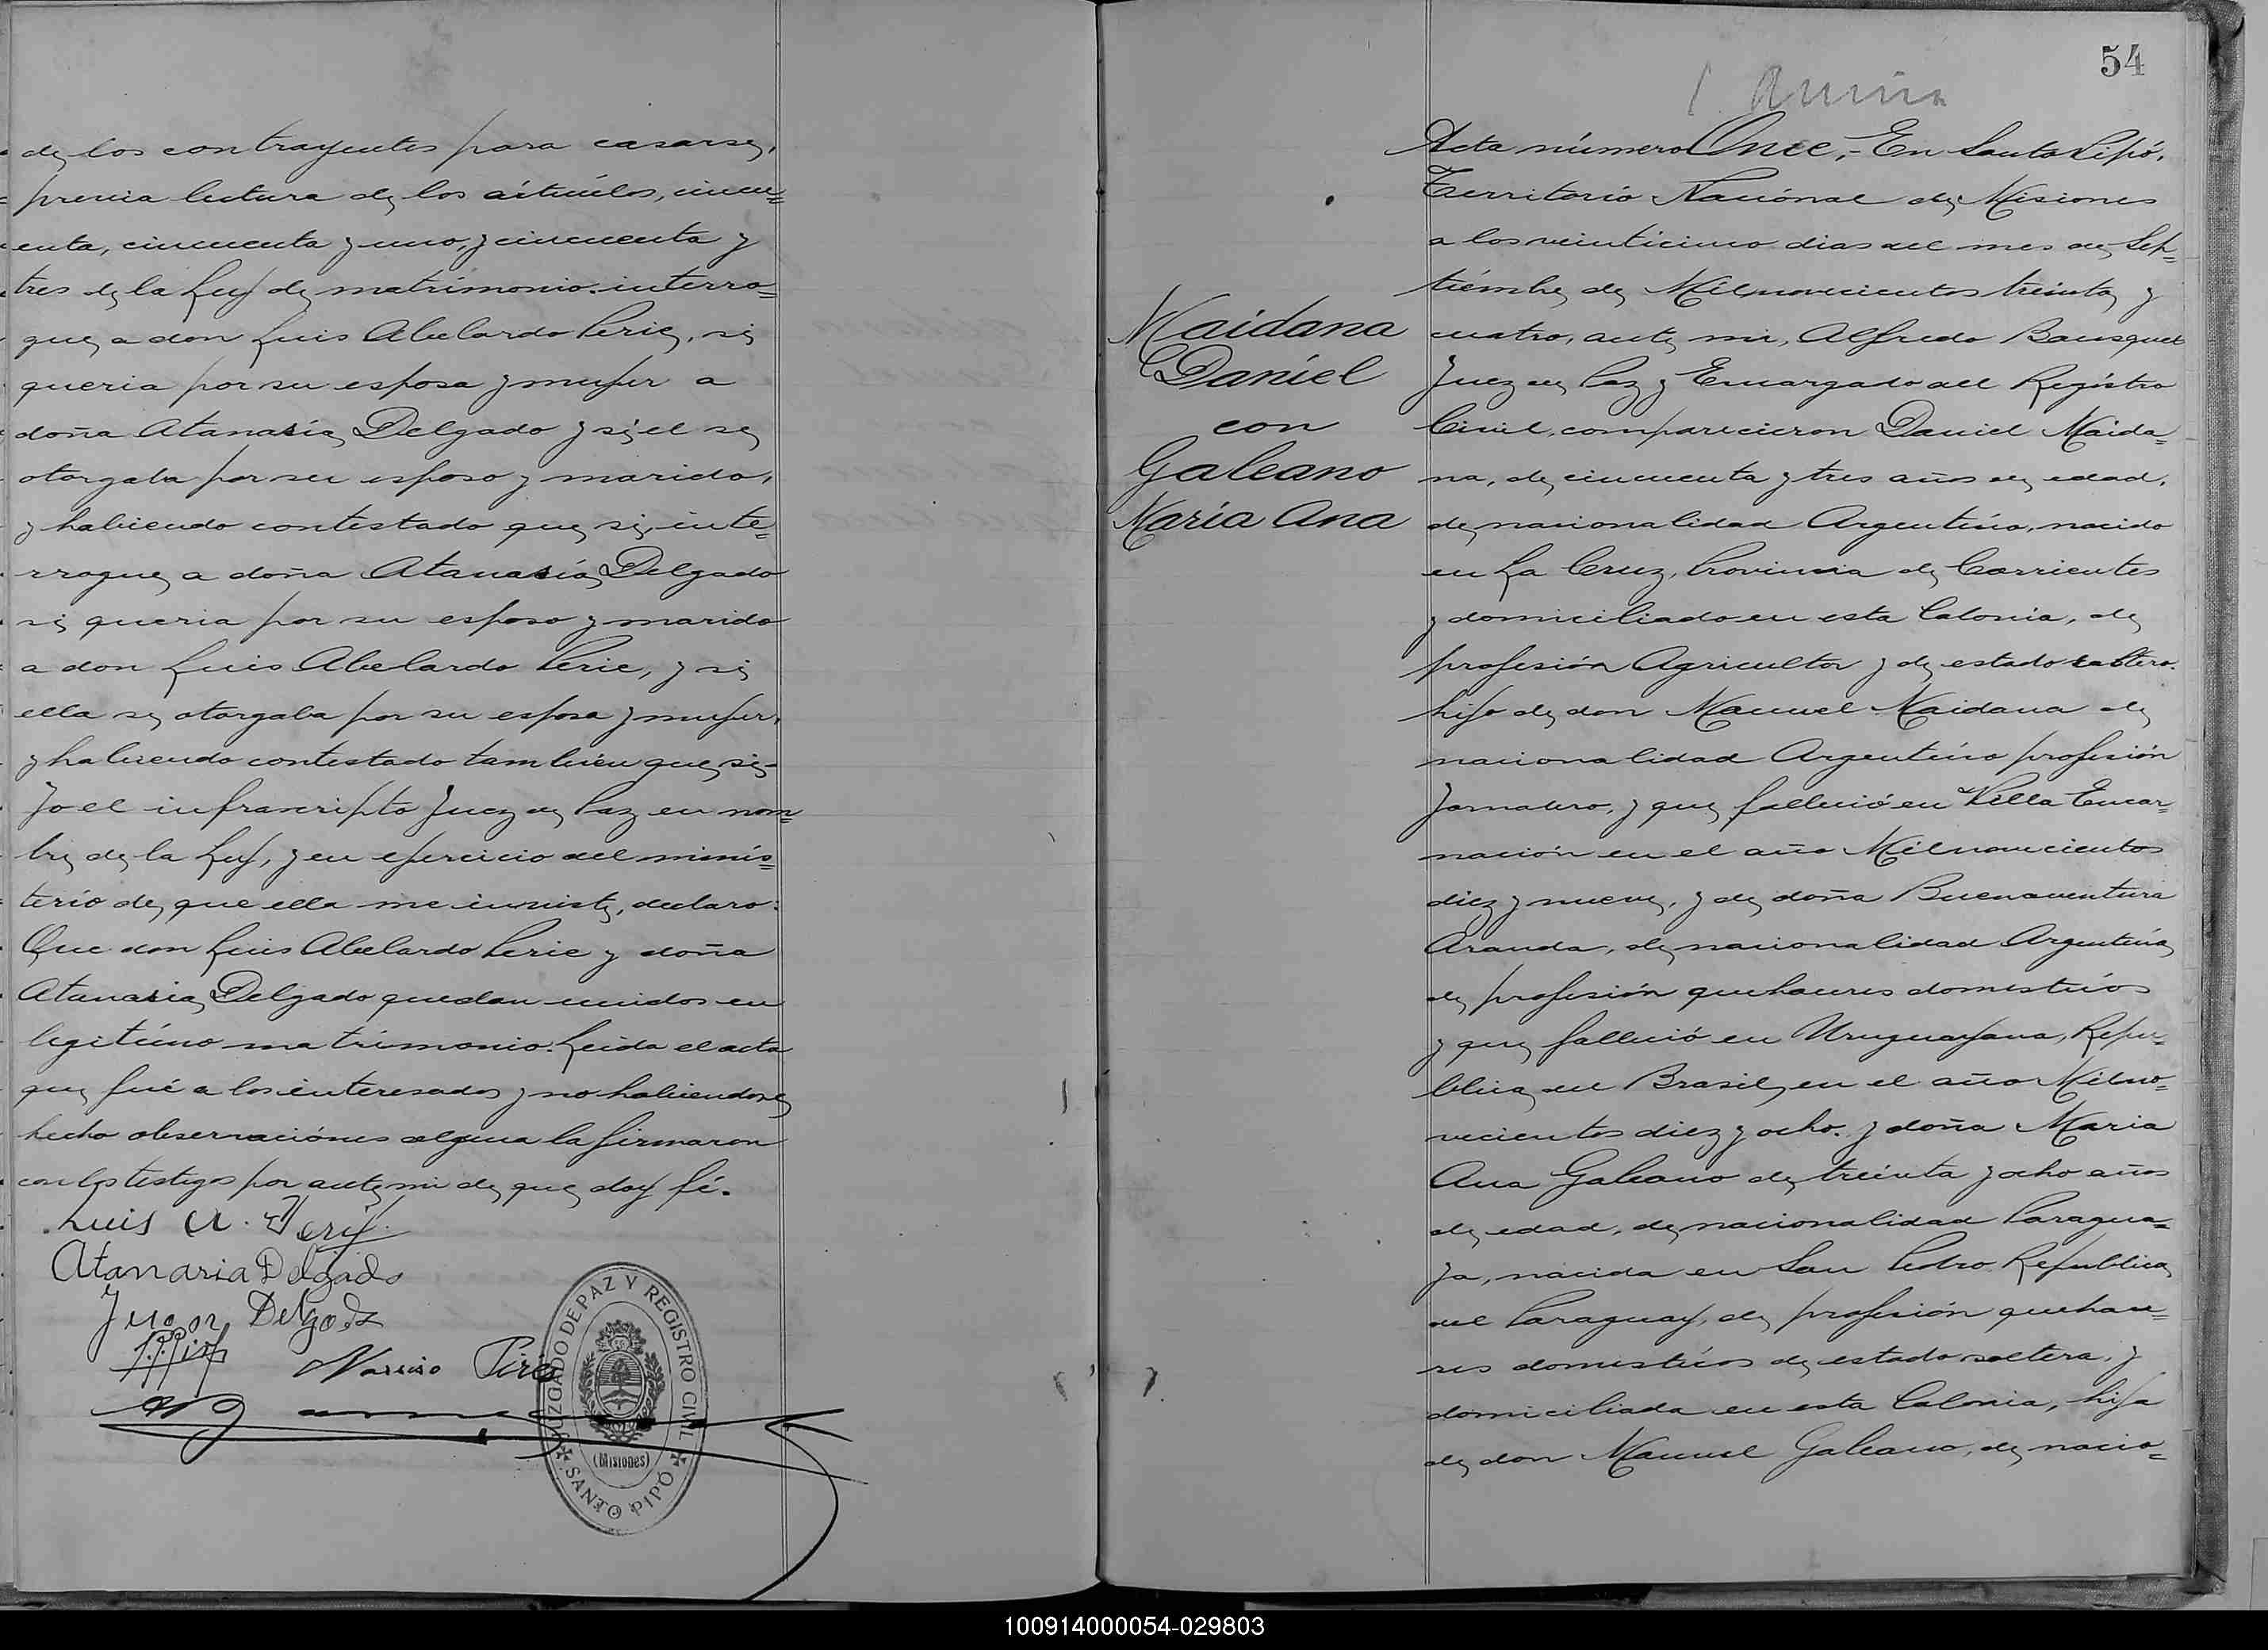 de los contrayentes para casarse,
previa lectura de los artículos, cincu=
enta, cincuenta y uno, y cincuenta y
tres de la Ley de matrimonio. interro=
que, a don Luis Abelardo Perie, si
queria por su esposa y mujer a
doña Atanasia Delgado y si el se
otorgaba por su esposo y marido,
y habiendo contestado que si, inte=
rrogue, a doña Atanasia Delgado
si queria por su esposo y marido
a don Luis Abelardo Perie, y si
ella se otorgaba por su esposa y mujer,
y habiendo contestado también que si-
Yo el infrascripto Juez de Paz en nom=
bre de la Ley, y en ejercicio del minis=
terio de que ella me inviste, declaro:
Que don Luis Abelardo Perie y doña
Atanasia Delgado quedan unidos en
legitimo matrimonio. Leida el acta
que fué a los interesados y no habiendose
hecho observaciónes alguna la firmaron
con los testigos por ante mi de que doy fé.
Luis A.
Atanasia Delgado
Juan Delgado
Narciso Pires
JUZGADO DE PAZ Y REGISTRO CIVIL
(Misiones)
SANTO PIPÓ
54
Acta número Once.- En Santo Pipó,
Territorio Nacional de Misiones
a los veinticinco dias del mes de Sep=
tiémbre de Mil novecientos treinta y
cuatro, ante mi, Alfredo Bousquet
Juez de Paz y Encargado del Registro
Civil, comparecieron Daniel Maida=
na, de cincuenta y tres años de edad,
de nacionalidad Argentino, nacido
en La Cruz, Provincia de Corrientes
y domiciliado en esta Colonia, de
profesión Agricultor y de estado soltero.
hijo de don Manuel Maidana de
nacionalidad Argentino profesión
Jornalero, y que falleció en Villa Encar=
nación en el año Mil novecientos
diez y nueve, y de doña Buenaventura
Aranda, de nacionalidad Argentina,
de profesión quehaceres domesticos
y que falleció en Uruguayana, Repu=
blica del Brasil, en el año Mil no=
vecientos diez y ocho. y doña Maria
Ana Galeano de treinta y ocho años
de edad, de nacionalidad Paragua=
ya, nacida en San Pedro Republica
del Paraguay, de profesión quehace=
res domesticos de estado soltera, y
domiciliada en esta Colonia, hija
de don Manuel Galeano, de nacio=
Maidana
Daniel
con
Galeano
María Ana
100914000054-029803